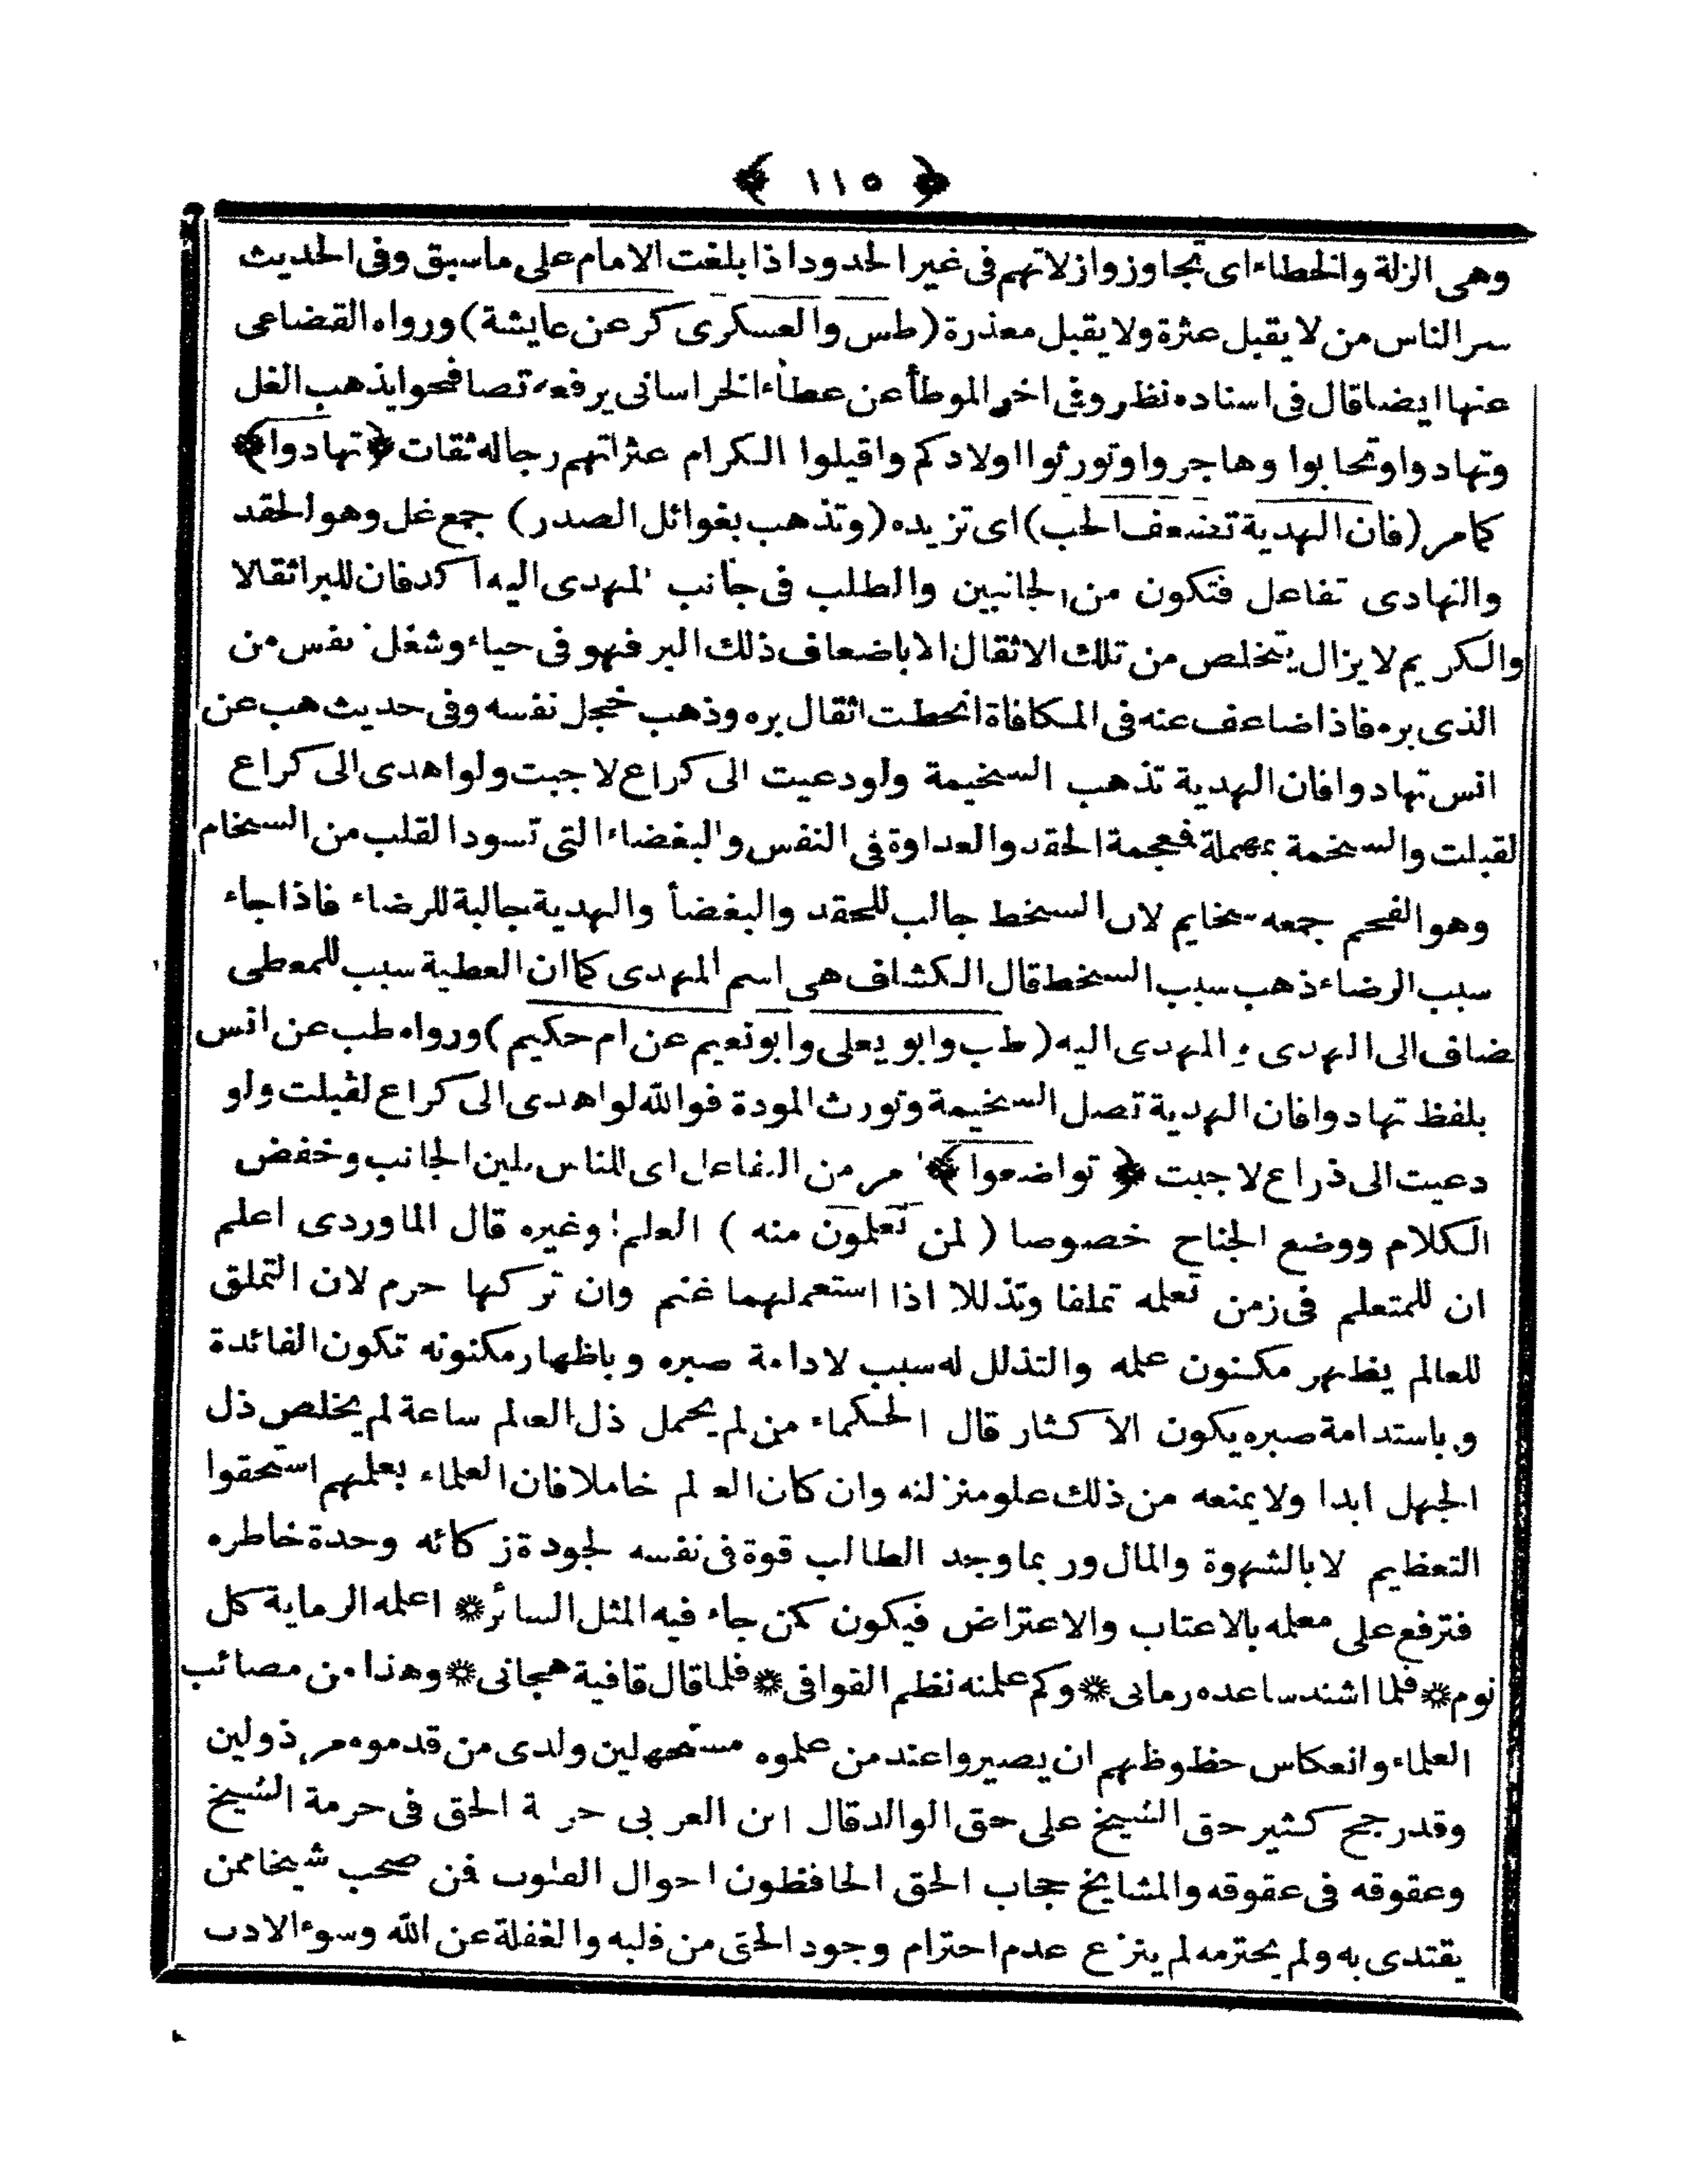 ﴿ ١١٥ ﴾
وهى الزلة والخطاء اى تجاوزوا زلاتهم فى غير الحدود اذا بلغت الامام على ماسبق وفى الحديث
سر الناس من لا يقبل عثرة ولا يقبل معذرة (طس والعسكرى كر عن عايشة) ورواه القضاعى
عنها ايضا قال فى اسناده نظر وفى اخر الموطأ عن عطاء الخراسانى يرفعه تصافحوا يذهب الغل
وتهادوا وتحابوا وهاجروا وتورثوا اولادكم واقيلوا الكرام عثراتهم رجاله ثقات ﴿تهادوا﴾
كما مر (فان الهدية تضعف الحب) اى تزيده (وتذهب بغوائل الصدر) جمع غل وهو الحقد
والتهادى تفاعل فتكون من الجانبين والطلب فى جانب المهدى اليه اكد فان للبر اثقالا
والكريم لا يزال يتخلص من تلك الاثقال الا باضعاف ذلك البر فهو فى حياء وشغل نفس من
الذى بره فاذا ضاعف عنه فى المكافاة انحطت اثقال بره وذهب خجل نفسه وفى حديث هب عن
انس تهادوا فان الهدية تذهب السخيمة ولو دعيت الى كراع لاجبت ولو اهدى الى كراع
لقبلت والسخمة بمهملة فمعجمة الحقد والعداوة فى النفس والبغضاء التى تسود القلب من السخام
وهو الفحم جمعه سخايم لان السخط جالب للحقد والبغضأ والهدية جالبة للرضاء فاذا جاء
سبب الرضاء ذهب سبب السخط قال الكشاف هى اسم المهدى كما ان العطية سبب للمعطى
ضاف الى الهدى و المهدى اليه (طب وابو يعلى وابو نعيم عن ام حكيم) ورواه طب عن انس
بلفظ تهادوا فان الهدية تصل السخيمة وتورث المودة فوالله لو اهدى الى كراع لقبلت ولو
دعيت الى ذراع لاجبت ﴿ تواضعوا ﴾ مر من التفاعل اى للناس بلين الجانب وخفض
الكلام ووضع الجناح خصوصا ( لمن تعلمون منه ) العلم وغيره قال الماوردى اعلم
ان للمتعلم فى زمن تعلمه تملقا وتذللا اذا استعملهما غنم وان تركها حرم لان التملق
للعالم يظهر مكنون علمه والتذلل له سبب لادامة صبره وباظهار مكنونه تكون الفائدة
وباستدامة صبره يكون الاكثار قال الحكماء من لم يحمل ذل العالم ساعة لم يخلص ذل
الجهل ابدا ولا يمنعه من ذلك علو منزلته وان كان العالم خاملا فان العلماء بعلمهم استحقوا
التعظيم لا بالشهوة والمال وربما وجد الطالب قوة فى نفسه لجودة زكائه وحدة خاطره
فترفع على معلمه بالاعتاب والاعتراض فيكون كمن جاء فيه المثل السائر * اعلمه الرماية كل
نوم * فلما اشتد ساعده رمانى * وكم علمنه نظم القوافى * فلما قال قافية هجانى * وهذا من مصائب
العلماء وانعكاس حظوظهم ان يصيروا عند من علموه مستجهلين ولدى من قدموه مرذولين
وقد رجح كثير حق الشيخ على حق الوالد قال ابن العربى حرمة الحق فى حرمة الشيخ
وعقوقه فى عقوقه والمشايخ حجاب الحق الحافظون احوال القلوب فمن صحب شيخا ممن
يقتدى به ولم يحترمه لم ينزع عدم احترام وجود الحق من قلبه والغفلة عن الله وسوء الادب